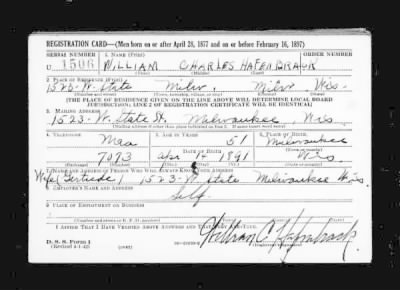 REGISTRATION CARD—(Men born on or after April 28, 1877 and on or before February 16, 1897)
SERIAL NUMBER 1. NAME (Print) ORDER NUMBER
U 1506 WILLIAM CHARLES HAFENBRAUK
2. PLACE OF RESIDENCE (Print)
1523 W. State Milw. Milw. Wis.
(Number and street) (Town, township, village, or city) (County) (State)
[THE PLACE OF RESIDENCE GIVEN ON THE LINE ABOVE WILL DETERMINE LOCAL BOARD
JURISDICTION; LINE 2 OF REGISTRATION CERTIFICATE WILL BE IDENTICAL]
3. MAILING ADDRESS
1523-W. State St. Milwaukee Wis
[Mailing address if other than place indicated on line 2. If same insert word same]
4. TELEPHONE 5. AGE IN YEARS 6. PLACE OF BIRTH
Mar 51 Milwaukee
DATE OF BIRTH
7093 Apr 14 1891 Wis.
7. NAME AND ADDRESS OF PERSON WHO WILL ALWAYS KNOW YOUR ADDRESS
Wife (Gertrude) 1523-W. State Milwaukee Wis.
8. EMPLOYER'S NAME AND ADDRESS
Self
9. PLACE OF EMPLOYMENT OR BUSINESS
(Number and street or R. F. D. number) (Town) (County) (State)
I AFFIRM THAT I HAVE VERIFIED ABOVE ANSWERS AND THAT THEY ARE TRUE.
D. S. S. Form 1
(Revised 4-1-42) (over)
William C.